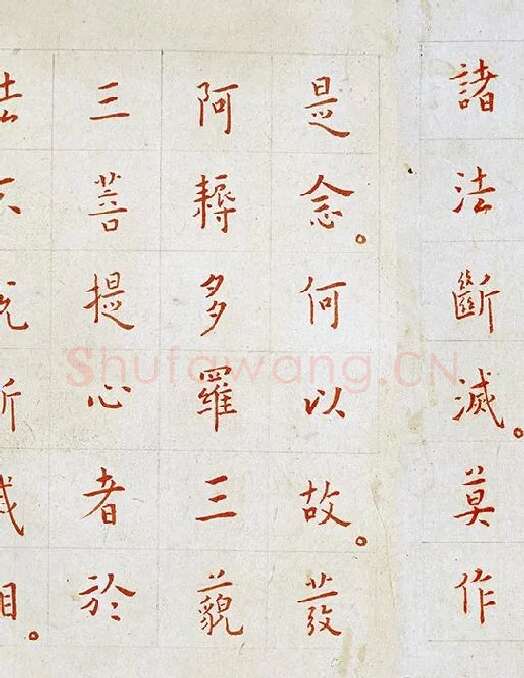 諸法斷滅。莫作
是念。何以故。發
阿耨多羅三藐
三菩提心者於
Shufawang.CN